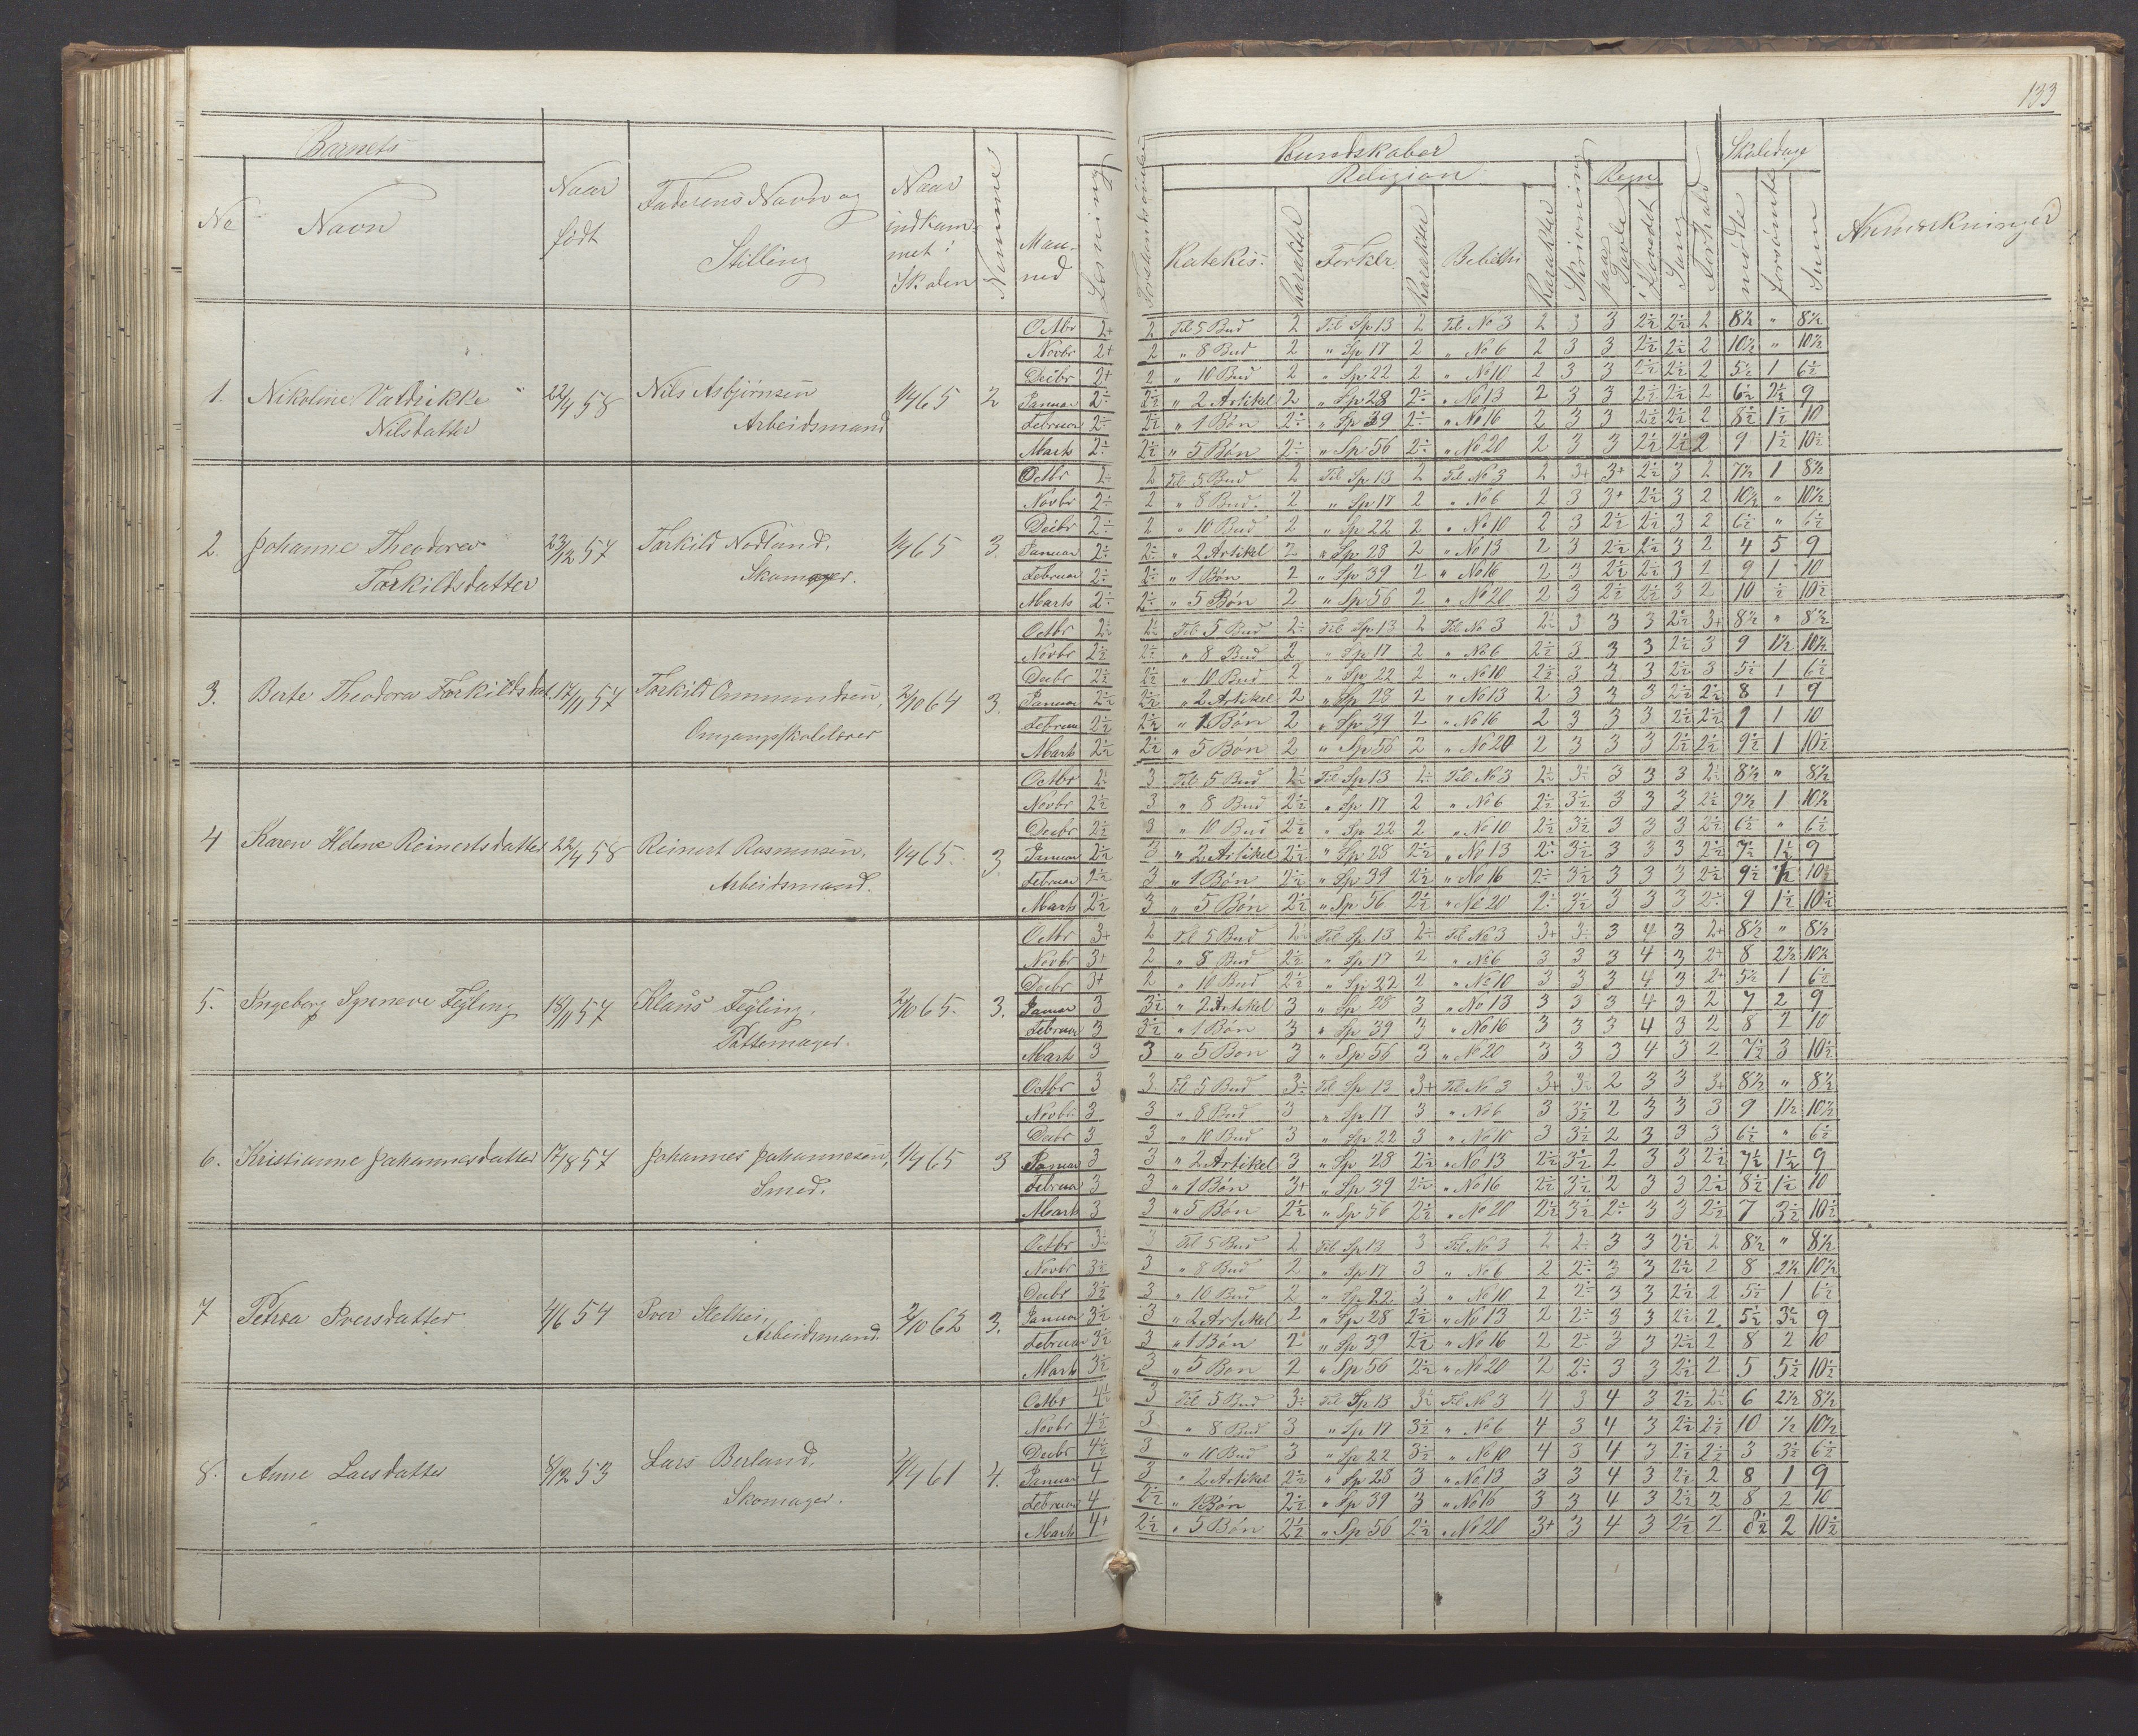 133
Barnets
No
Navn
Naar født
Faderens Navn og Stilling
Naar indkommet i Skolen
Nemme
Maaned
Læsning
Forstandsøvelse
Kundskaber
Religion
Katekis:
Karakter
Forklr.
Karakter
Bibelhi
Karakter
Skrivning
Regn
paa Tavle
i Hovedet
Sang
Forhold
Skoledage
mødte
forsömte
Sum
Anmærkninger
1. Nikoline Valdrikke Nilsdatter 22/4 58 Nils Asbjörnsen Arbeidsmand 1/4 65 2
Octbr 2+ 2 Til 5 Bud 2 Til Sp 13 2 Til No 3 2 3 3 2½ 2½ 2 8½ " 8½
Novbr 2+ 2 " 8 Bud 2 " Sp 17 2 " No 6 2 3 3 2½ 2½ 2 10½ " 10½
Decbr 2+ 2 " 10 Bud 2 " Sp 22 2 " No 10 2 3 3 2½ 2½ 2 5½ 1 6½
Januar 2÷ 2½ " 2 Artikel 2 " Sp 28 2÷ " No 13 2 3 3 2½ 2½ 2 6½ 2½ 9
Februar 2÷ 2½ " 1 Bön 2÷ " Sp 39 2÷ " No 16 2 3 3 2½ 2½ 2 8½ 1½ 10
Marts 2÷ 2½ " 5 Bön 2÷ " Sp 56 2÷ " No 20 2 3 3 2½ 2½ 2 9 1½ 10½
2. Johanne Theodora Torkildsdatter 23/12 57 Torkild Nodland, Skomager. 1/4 65 3.
Octbr 2÷ 2 Til 5 Bud 2 Til Sp 13 2 Til No 3 2 3+ 3+ 2½ 3 2 7½ 1 8½
Novbr 2÷ 2 " 8 Bud 2 " Sp 17 2 " No 6 2 3 3+ 2½ 3 2 10½ " 10½
Decbr 2÷ 2 " 10 Bud 2 " Sp 22 2 " No 10 2 3 2½ 2½ 3 2 6½ " 6½
Januar 2÷ 2÷ " 2 Artikel 2 " Sp 28 2 " No 13 2 3 2½ 2½ 3 2 4 5 9
Februar 2÷ 2÷ " 1 Bön 2 " Sp 39 2 " No 16 2 3 2½ 2½ 3 2 9 1 10
Marts 2÷ 2÷ " 5 Bön 2 " Sp 56 2 " No 20 2 3 2½ 2½ 3 2 10 ½ 10½
3. Berte Theodora Torkildsdat. 17/11 57 Torkild Ommundsen, Omgangsskolelærer 2/10 64 3.
Octbr 2½ 2½ Til 5 Bud 2÷ Til Sp 13 2 Til No 3 2½ 3 3 3 2½ 3+ 8½ " 8½
Novbr 2½ 2½ " 8 Bud 2 " Sp 17 2 " No 6 2½ 3 3 3 2½ 3 9 1½ 10½
Decbr 2½ 2½ " 10 Bud 2 " Sp 22 2 " No 10 2½ 3 3 3 2½ 3 5½ 1 6½
Januar 2½ 2½ " 2 Artikel 2 " Sp 28 2 " No 13 2 3 3 3 2½ 2½ 8 1 9
Februar 2½ 2½ " 1 Bön 2 " Sp 39 2 " No 16 2 3 3 3 2½ 2½ 9 1 10
Marts 2½ 2½ " 5 Bön 2 " Sp 56 2 " No 20 2 3 3 3 2½ 2½ 9½ 1 10½
4 Karen Helene Reinertsdatter 22/4 58 Reinert Rasmussen, Arbeidsmand. 1/4 65. 3.
Octbr 2½ 3 Til 5 Bud 2½ Til Sp 13 2÷ Til No 3 2½ 3½ 3 3 3 2½ 8½ " 8½
Novbr 2½ 3 " 8 Bud 2½ " Sp 17 2 " No 6 2½ 3½ 3 3 3 2½ 9½ 1 10½
Decbr 2½ 3 " 10 Bud 2½ " Sp 22 2 " No 10 2½ 3½ 3 3 3 2½ 6½ " 6½
Januar 2½ 3 " 2 Artikel 2½ " Sp 28 2½ " No 13 2÷ 3½ 3 3 3 2½ 7½ 1½ 9
Februar 2½ 3 " 1 Bön 2½ " Sp 39 2½ " No 16 2÷ 3½ 3 3 3 2½ 9½ ½ 10
Marts 2½ 3 " 5 Bön 2½ " Sp 56 2½ " No 20 2÷ 3½ 3 3 3 2÷ 9 1½ 10½
5. Ingeborg Synneve Fegling 18/11 57 Klaus Fegling, Pottemager. 2/10 65. 3.
Octbr 3+ 2 Til 5 Bud 2½ Til Sp 13 2÷ Til No 3 3+ 3÷ 3 4 3 2+ 8½ " 8½
Novbr 3+ 2 " 8 Bud 2½ " Sp 17 2 " No 6 3 3 3 4 3 2+ 8 2½ 10½
Decbr 3+ 2 " 10 Bud 2½ " Sp 22 2 " No 10 3 3 3 4 3 2+ 5½ 1 6½
Januar 3 3½ " 2 Artikel 3 " Sp 28 3 " No 13 3 3 3 4 3 2 7 2 9
Februar 3 3½ " 1 Bön 3 " Sp 39 3 " No 16 3 3 3 4 3 2 8 2 10
Marts 3 3 " 5 Bön 3 " Sp 56 3 " No 20 3 3 3 4 3 2 7½ 3 10½
6. Kristianne Johannesdatter 17/8 57 Johannes Johannesen, Smed. 1/4 65 3
Octbr 3 3 Til 5 Bud 3÷ Til Sp 13 3+ Til No 3 3+ 3½ 2 3 3 3+ 8½ " 8½
Novbr 3 3 " 8 Bud 3 " Sp 17 3 " No 6 3 3½ 2 3 3 3 9 1½ 10½
Decbr 3 3 " 10 Bud 3 " Sp 22 3 " No 10 3 3½ 2 3 3 3 6½ " 6½
Januar 3 3 " 2 Artikel 3 " Sp 28 2½ " No 13 2½ 3½ 2 3 3 2½ 7½ 1½ 9
Februar 3 3 " 1 Bön 3+ " Sp 39 2½ " No 16 2½ 3½ 2 3 3 2½ 8½ 1½ 10
Marts 3 3 " 5 Bön 2½ " Sp 56 2½ " No 20 2½ 3½ 2÷ 3 3 2½ 7 3½ 10½
7 Petrea Iversdatter 4/6 54 Iver Stelhei, Arbeidsmand. 2/10 62 3.
Octbr 3½ 3 Til 5 Bud 2 Til Sp 13 3 Til No 3 2 2÷ 3 3 2½ 2 8½ " 8½
Novbr 3½ 3 " 8 Bud 2 " Sp 17 3 " No 6 2 2÷ 3 3 2½ 2 8 2½ 10½
Decbr 3½ 3 " 10 Bud 2 " Sp 22 3 " No 10 2 2÷ 3 3 2½ 2 5½ 1 6½
Januar 3½ 3 " 2 Artikel 2 " Sp 28 2½ " No 13 2 2÷ 3 3 2½ 2 5½ 3½ 9
Februar 3½ 3 " 1 Bön 2 " Sp 39 2½ " No 16 2 2÷ 3 3 2½ 2 8 2 10
Marts 3½ 3 " 5 Bön 2 " Sp 56 2½ " No 20 2 2÷ 3 3 2½ 2 5 5½ 10½
8. Anne Larsdatter 8/12 53 Lars Berland, Skomager. 2/4 61 4.
Octbr 4½ 3 Til 5 Bud 3÷ Til Sp 13 3½ Til No 3 4 3 4 3 2½ 2½ 6 2½ 8½
Novbr 4½ 3 " 8 Bud 3 " Sp 17 3½ " No 6 4 3 4 3 2½ 2½ 10 ½ 10½
Decbr 4½ 3 " 10 Bud 3 " Sp 22 3½ " No 10 4 3 4 3 2½ 2½ 3 3½ 6½
Januar 4 3 " 2 Artikel 2½ " Sp 28 3 " No 13 3 3 4 3 2½ 2 8 1 9
Februar 4 2½ " 1 Bön 2½ " Sp 39 3 " No 16 3 3 4 3 2½ 2 8 2 10
Marts 4+ 2½ " 5 Bön 2½ " Sp 56 2½ " No 20 3+ 3 4 3 2½ 2 8½ 2 10½